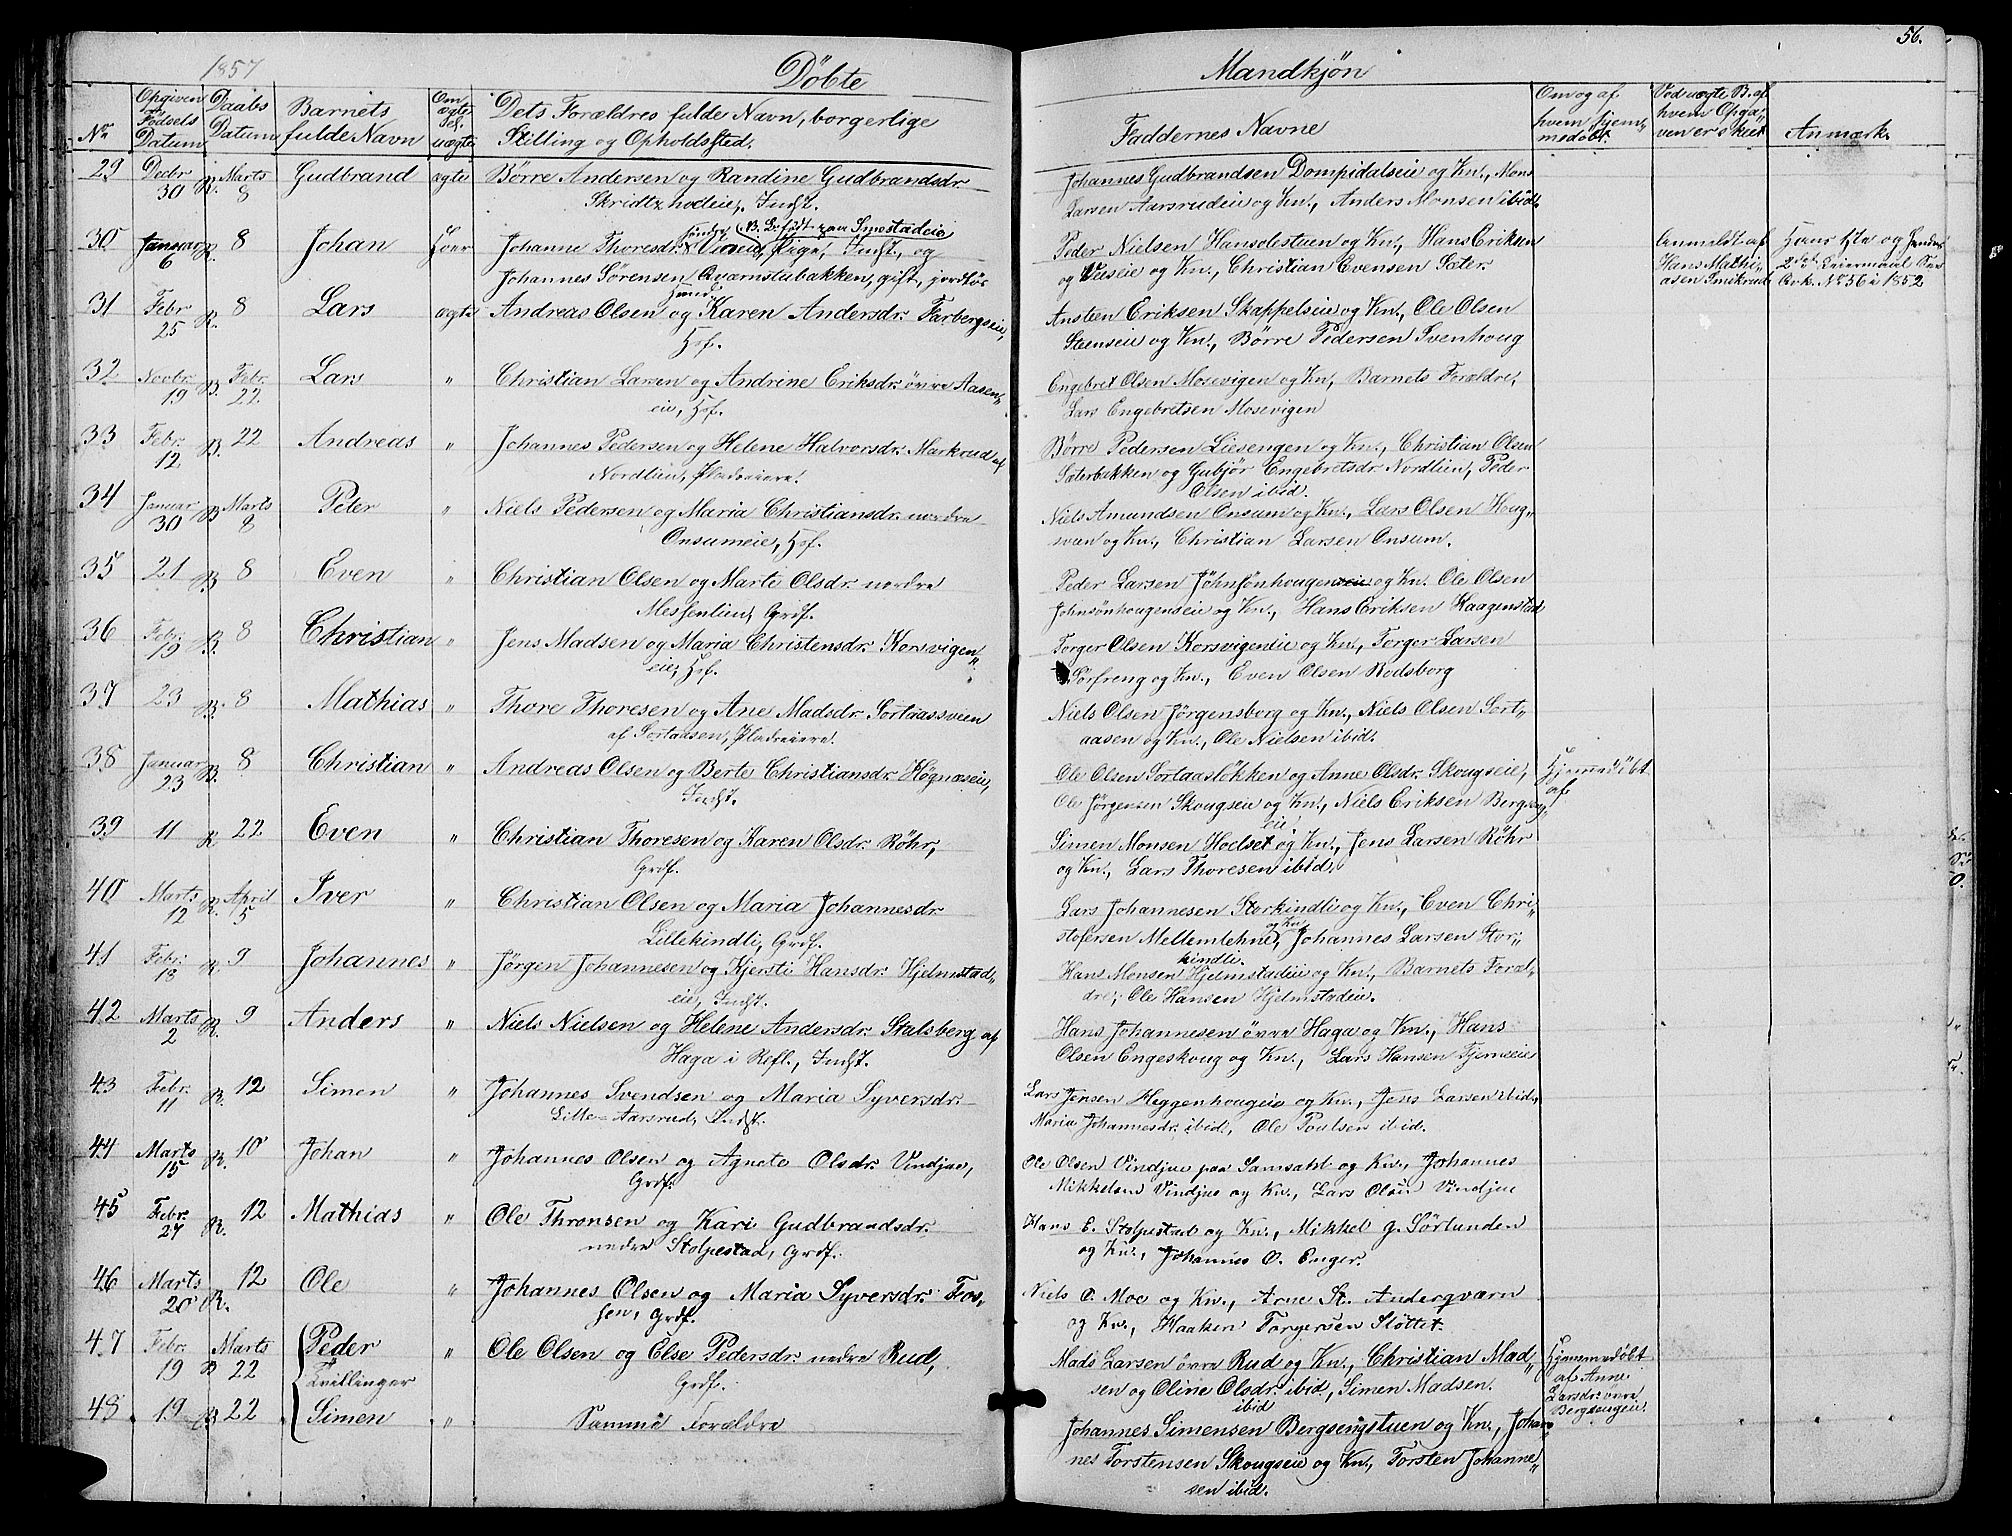 56.
1857
Döbte
Mandkjøn
No
Opgiven Fødsels Datum
Daabs Datum
Barnets fulde Navn
Om ægte el. uægte
Dets Forældres fulde Navn, borgerlige
Stilling og Opholdssted.
Faddernes Navne
Om og af hvem hjem„ medöbt.
Ved uægte B. af hvem Opga„ ven er skeet
Anmærk.
29 Decbr 30 R. Marts 8 Gudbrand ægte Börre Andersen og Randine Gudbrandsdr
Skridtzholeie, Indst.
Johannes Gudbrandsen Dompidalseie og Kn., Mons
Larsen Aarsrudeie og Kn., Anders Monsen ibid.
30 Januar 6 R. 8 Johan Johanne Thoresdr. Pige, Indst., og
Johannes Sörensen Qvarnstubakken, gift, jordlös
Peder Nielsen Hansolestuen og Kn., Hans Eriksen
og Kn., Christian Evensen Sæter.
Anmeldt af Hans Mathi„ asen Smikrud
Hans 1ste og hendes
2det Leiermaal See
Ark. No 56 i 1852
31 Febr 25 R. 8 Lars ægte Andreas Olsen og Karen Andersdr. Farbergseie,
Hof.
Ansteen Eriksen Skappelseie og Kn., Ole Olsen
Steenseie og Kn., Börre Pedersen Svenhoug
32 Novbr 19 B. Febr. 22 Lars „ Christian Larsen og Andrine Eriksdr. övre Aasen„
eie, Hof.
Engebret Olsen Mosevigen og Kn., Barnets Forældre,
Lars Engebretsen Mosevigen
33 Febr. 12 B. 22 Andreas „ Johannes Pedersen og Helene Halvorsdr. Markrud af
Nordlien, Pladseiere.
Börre Pedersen Liesengen og Kn., Christian Olsen
Sæterbakken og Gubjör Engebretsdr Nordlien, Peder
Olsen ibid.
34 Januar 30 B. Marts 8 Peter „ Niels Pedersen og Maria Christiansdr. nordre
Onsumeie, Hof.
Niels Amundsen Onsum og Kn., Lars Olsen Houg„
sveen og Kn., Christian Larsen Onsum.
35 21 B. 8 Even „ Christian Olsen og Marte Olsdr. nordre
Messenlien, Grdf.
Peder Larsen Jöhnsönhougenseie og Kn. Ole Olsen
Johnsönhougenseie og Kn., Hans Eriksen Haagenstad
36 Febr. 19 B. 8 Christian „ Jens Madsen og Maria Christensdr. Korsvigen„
eie, Hof.
Torger Olsen Korsvigeneie og Kn., Torger Larsen
Sörfreng og Kn., Even Olsen Rodsborg
37 23 B. 8 Mathias „ Thore Thoresen og Ane Madsdr. Sortaassveen
af Sortaasen, Pladseiere.
Niels Olsen Jörgensberg og Kn., Niels Olsen Sort„
aasen og Kn., Ole Nielsen ibid.
38 Januar 23 B. 8 Christian „ Andreas Olsen og Berte Christiansdr. Högnæseie,
Indst.
Ole Olsen Sortaaslökken og Anne Olsdr. Skougseie,
Ole Jörgensen Skougseie og Kn., Niels Eriksen Bergseng„
eie.
Hjemmedöbt
af
39 11 R 22 Even „ Christian Thoresen og Karen Olsdr. Röhr,
Grdf.
Simen Monsen Hoelset og Kn., Jens Larsen Röhr
og Kn., Lars Thoresen ibid.
40 Marts 12 R. April 5 Iver „ Christian Olsen og Maria Johannesdr.
Lillekindli, Grdf.
Lars Johannesen Storkindli og Kn., Even Chri„
stofersen Mellemlehne, og Kn. Johannes Larsen Stor„
kindli.
41 Febr. 18 R. 9 Johannes „ Jörgen Johannesen og Kjersti Hansdr. Hjelmstad„
eie, Indst.
Hans Monsen Hjelmstadeie og Kn., Barnets Foræl„
dre, Ole Hansen Hjelmstadeie.
42 Marts 2 R. 9 Anders „ Niels Nielsen og Helene Andersdr. Stalsberg af
Haga i Refl., Indst.
Hans Johannesen övre Haga og Kn., Hans
Olsen Engeskoug og Kn., Lars Hansen Tjerneeie
43 Febr. 11 R. 12 Simen „ Johannes Svendsen og Maria Syversdr.
Lille-Aarsrud, Indst.
Lars Jensen Heggenhougeie og Kn., Jens Larsen ibid.,
Maria Johannesdr. ibid., Ole Poulsen ibid.
44 Marts 15 R. 10 Johan „ Johannes Olsen og Agnete Olsdr. Vindjue,
Grdf.
Ole Olsen Vindjue paa Samsahl og Kn., Johannes
Mikkelsen Vindjue og Kn., Lars Olsen Vindjue
45 Febr. 27 R. 12 Mathias „ Ole Thronsen og Kari Gudbrandsdr.
nedre Stolpestad, Grdf.
Hans E. Stolpestad og Kn., Mikkel G. Sörlunden
og Kn., Johannes O. Enger.
46 Marts 20 R. 12 Ole „ Johannes Olsen og Maria Syversdr. Fos„
sen, Grdf.
Niels O. Moe og Kn., Arne St. Anderqværn
og Kn., Haaken Torgersen Slöttet.
47 Febr. 19 B Marts 22 Peder „ Ole Olsen og Else Pedersdr. nedre Rud,
Tvillinger Grdf.
Mads Larsen övre Rud og Kn., Christian Mad„
sen og Oline Olsdr. ibid, Simen Madsen.
ibid
Hjemmedöbt
af Anne
Larsdr. övre
Bergsengeie.
48 19 B 22 Simen „ Samme Forældre
Johannes Simensen Bergsengstuen og Kn., Johan„
nes Torstensen Skougseie og Kn., Torsten Johanne„
sen ibid.